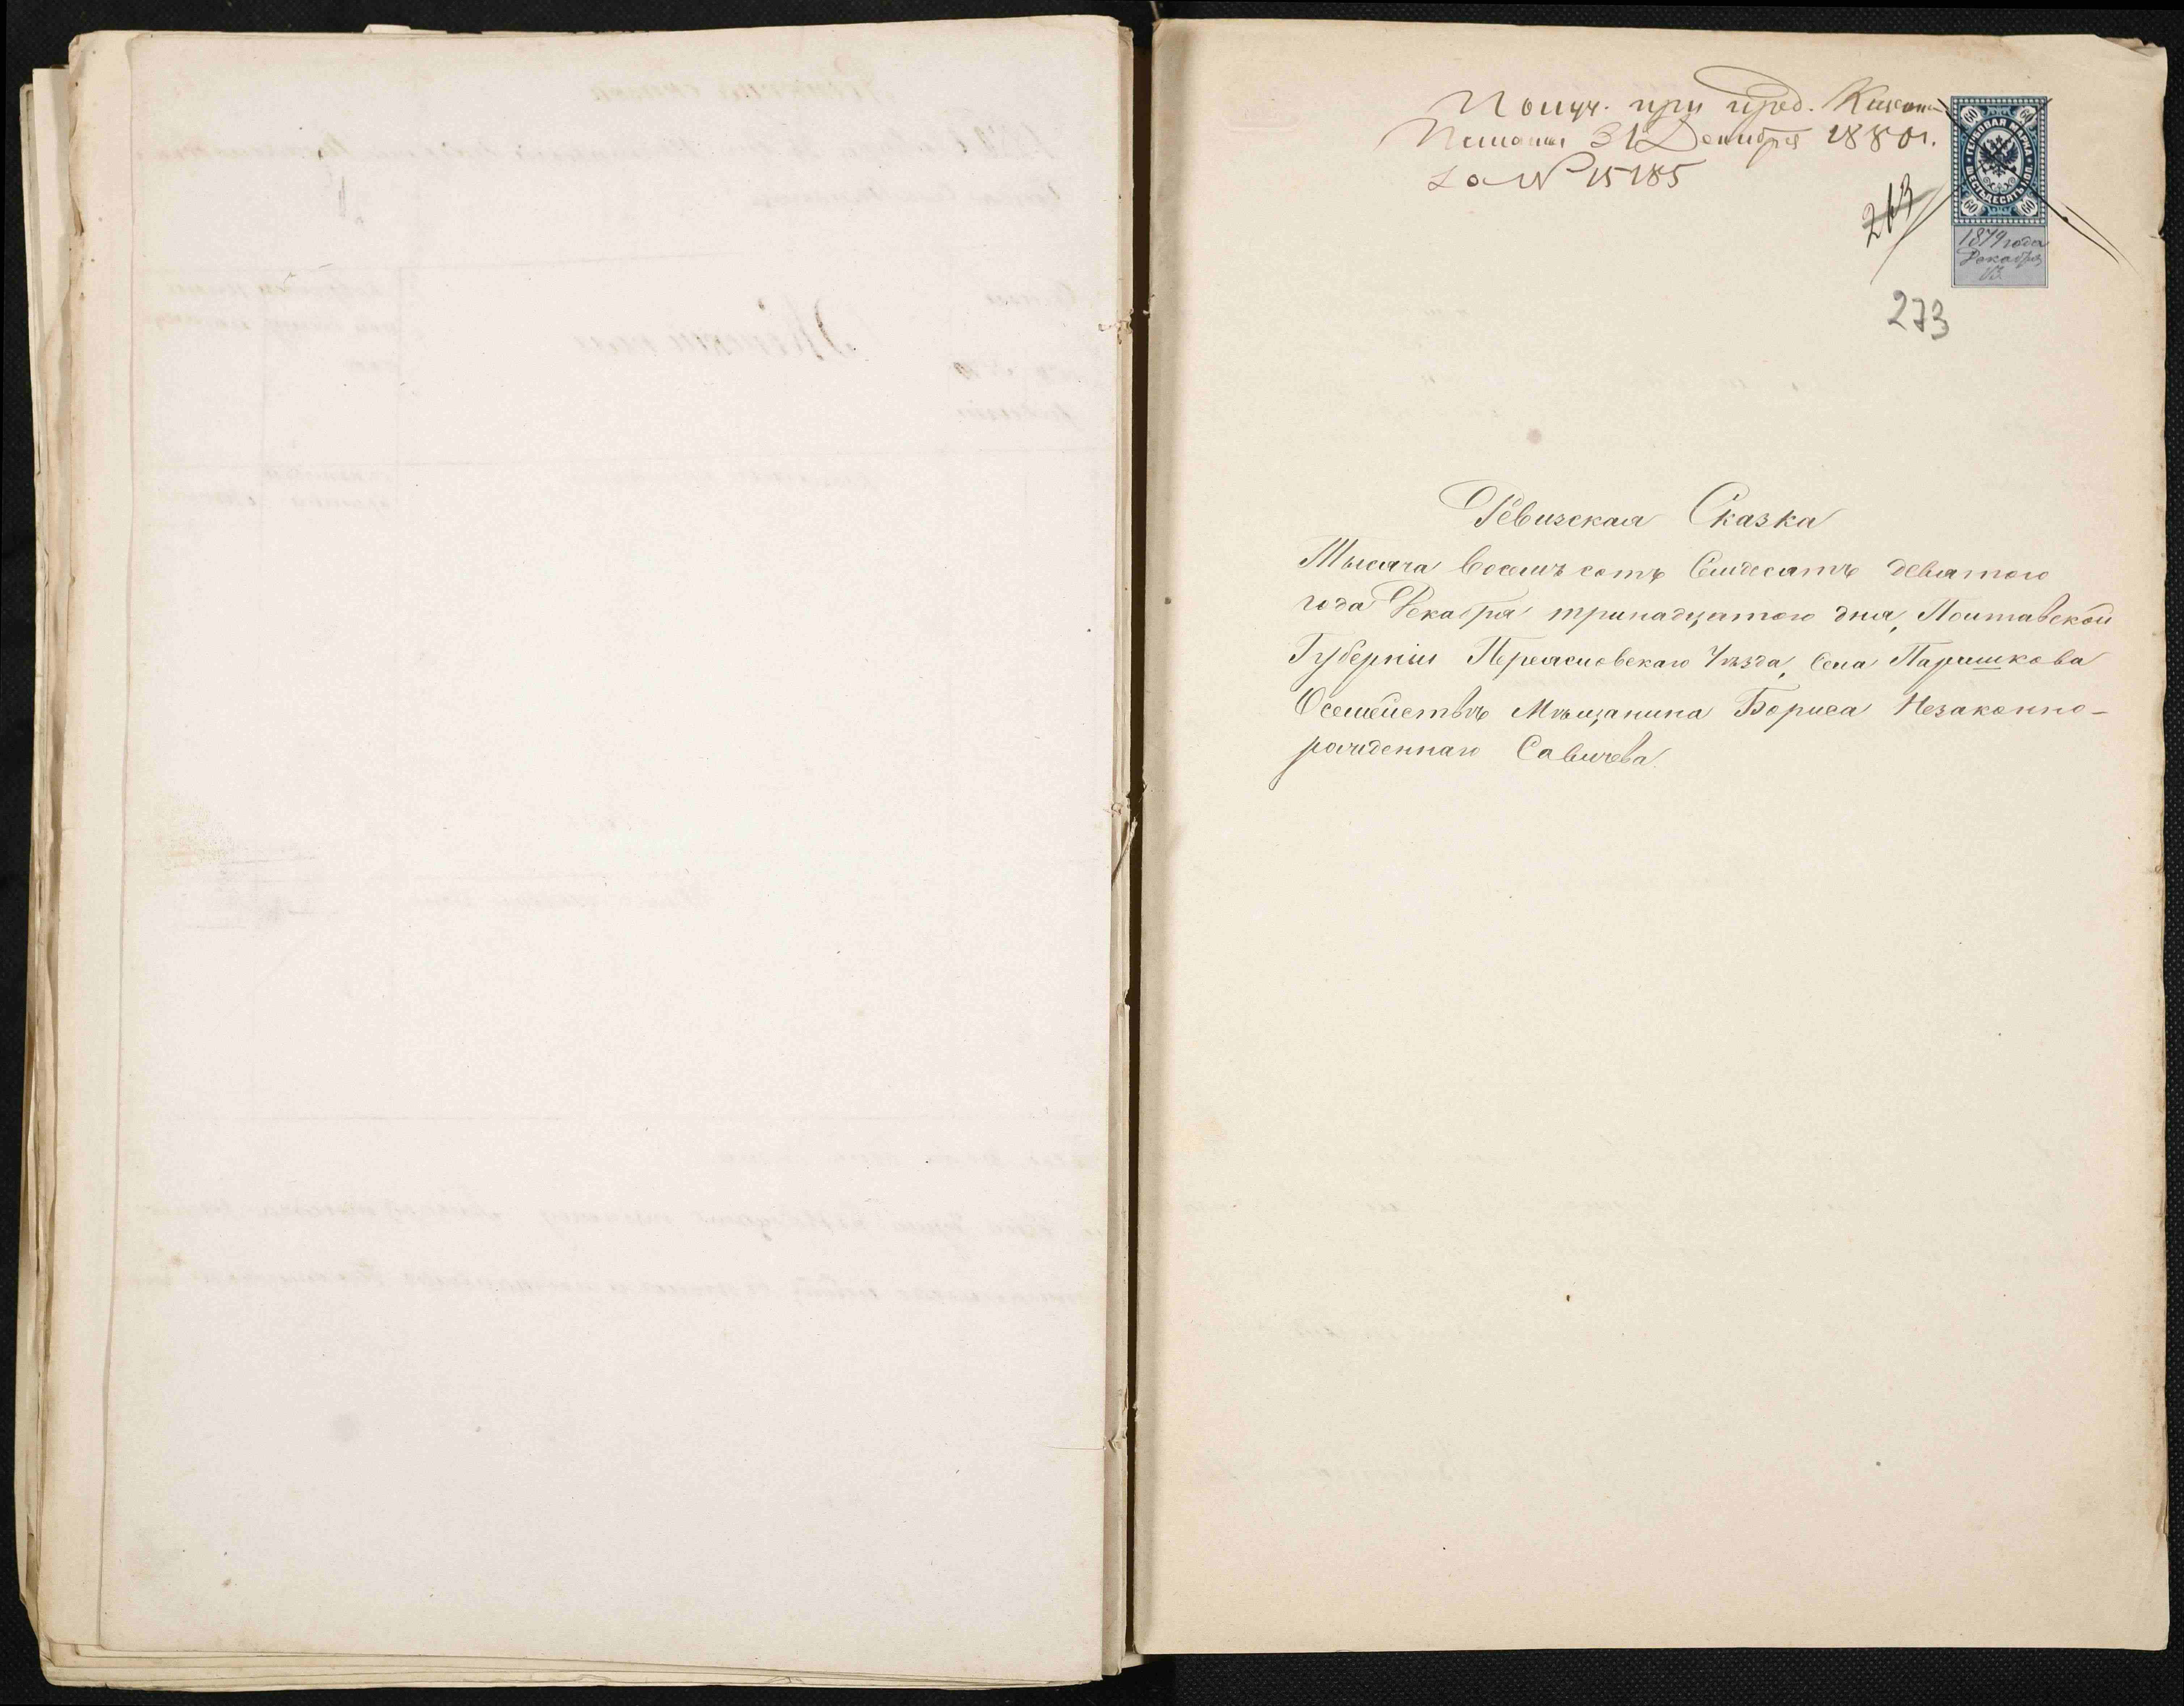 Получ. при пред. Казен.
Палаты 31 Декабря 1880 г.
за № 15185
60 60
ГЕРБОВАЯ МАРКА
ШЕСТЬДЕСЯТЪ КОП.
60 60
1879 года
Декабря
13.
263
273
Ревизская Сказка
Тысяча восемъ сотъ Семдесятъ девятого
года Декабря тринадцатого дня, Полтавской
Губернiи Переясловскаго Уѣзда, Села Парышкова
О семействѣ Мѣщанина Бориса Незаконно-
рожденнаго Савичева.